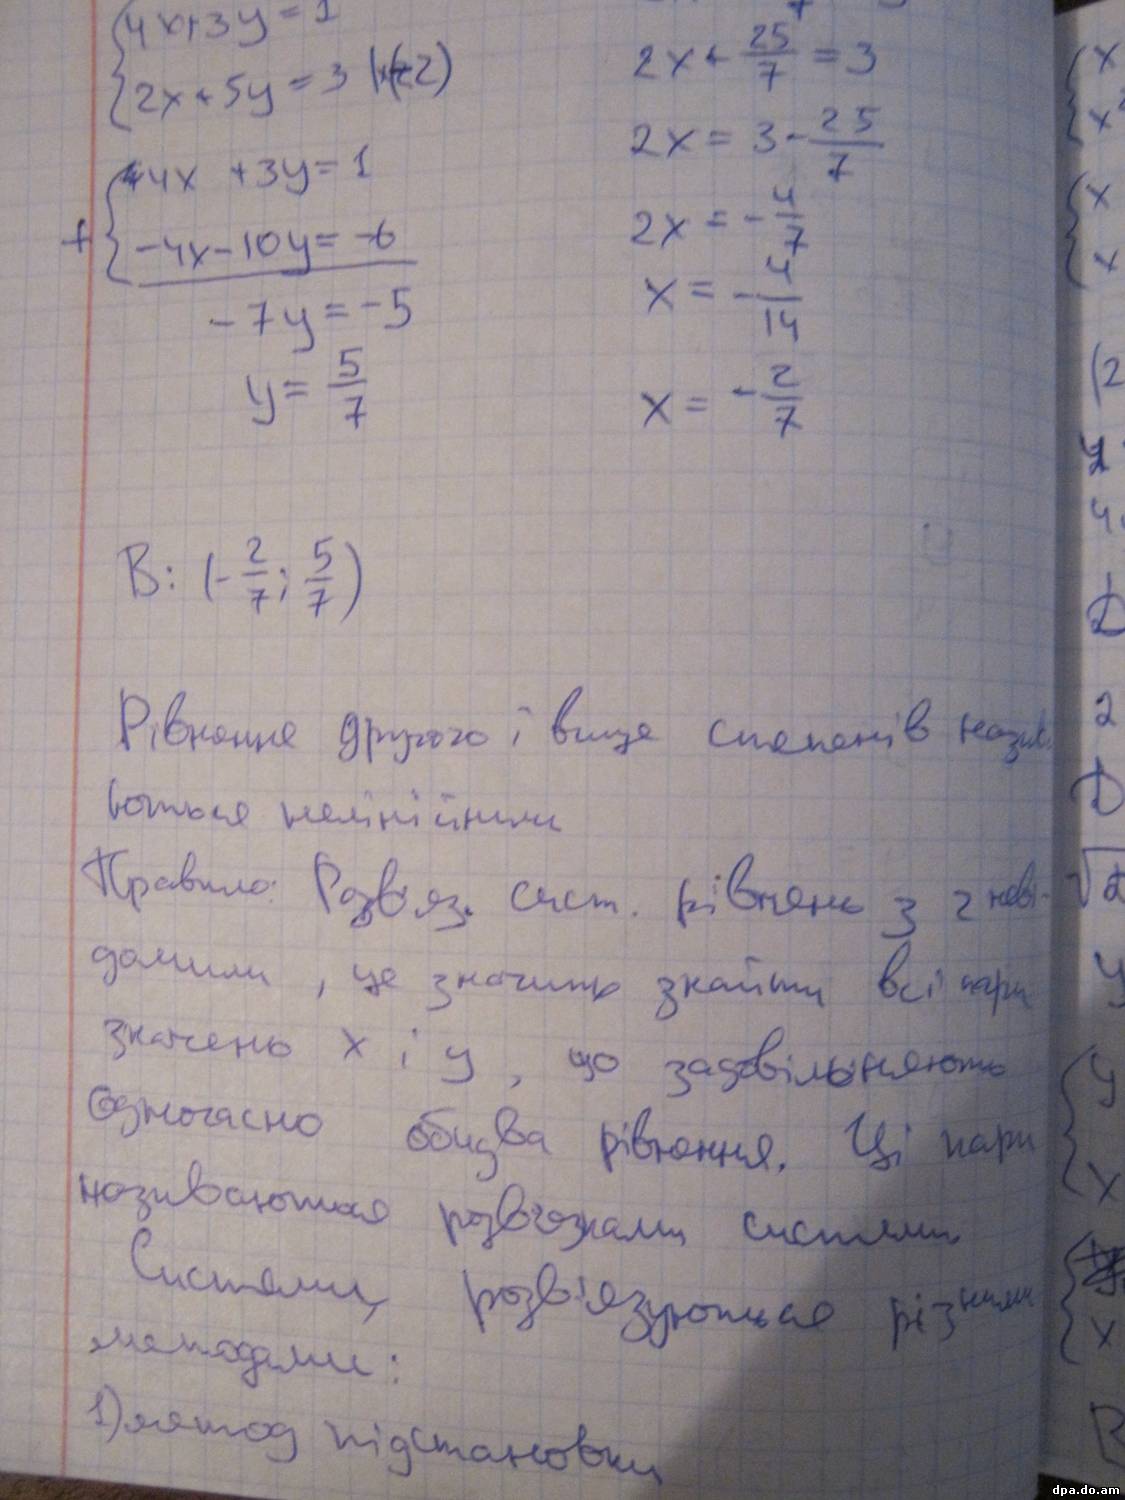 4x+3y=1
2x+5y=3 |×(-2)
4x +3y=1
+
-4x-10y=-6
-7y=-5
y= 5/7
2x+ 25/7 =3
2x=3- 25/7
2x=- 4/7
x=- 4/14
x=- 2/7
В: (- 2/7; 5/7)
Рівняння другого і вище степенів назив
ються нелінійними
Правило: Розв'яз. сист. рівнень з 2 неві-
домими, це значить знайти всі пари
значень x і y, що задовільняють
одночасно обидва рівняння. Ці пари
називаються розв'язками системи
Системи, розв'язуються різними
методами:
1) метод підстановки
x
x
x
x
(2
4
D
2
D
y
y
x
x
В
dpa.do.am